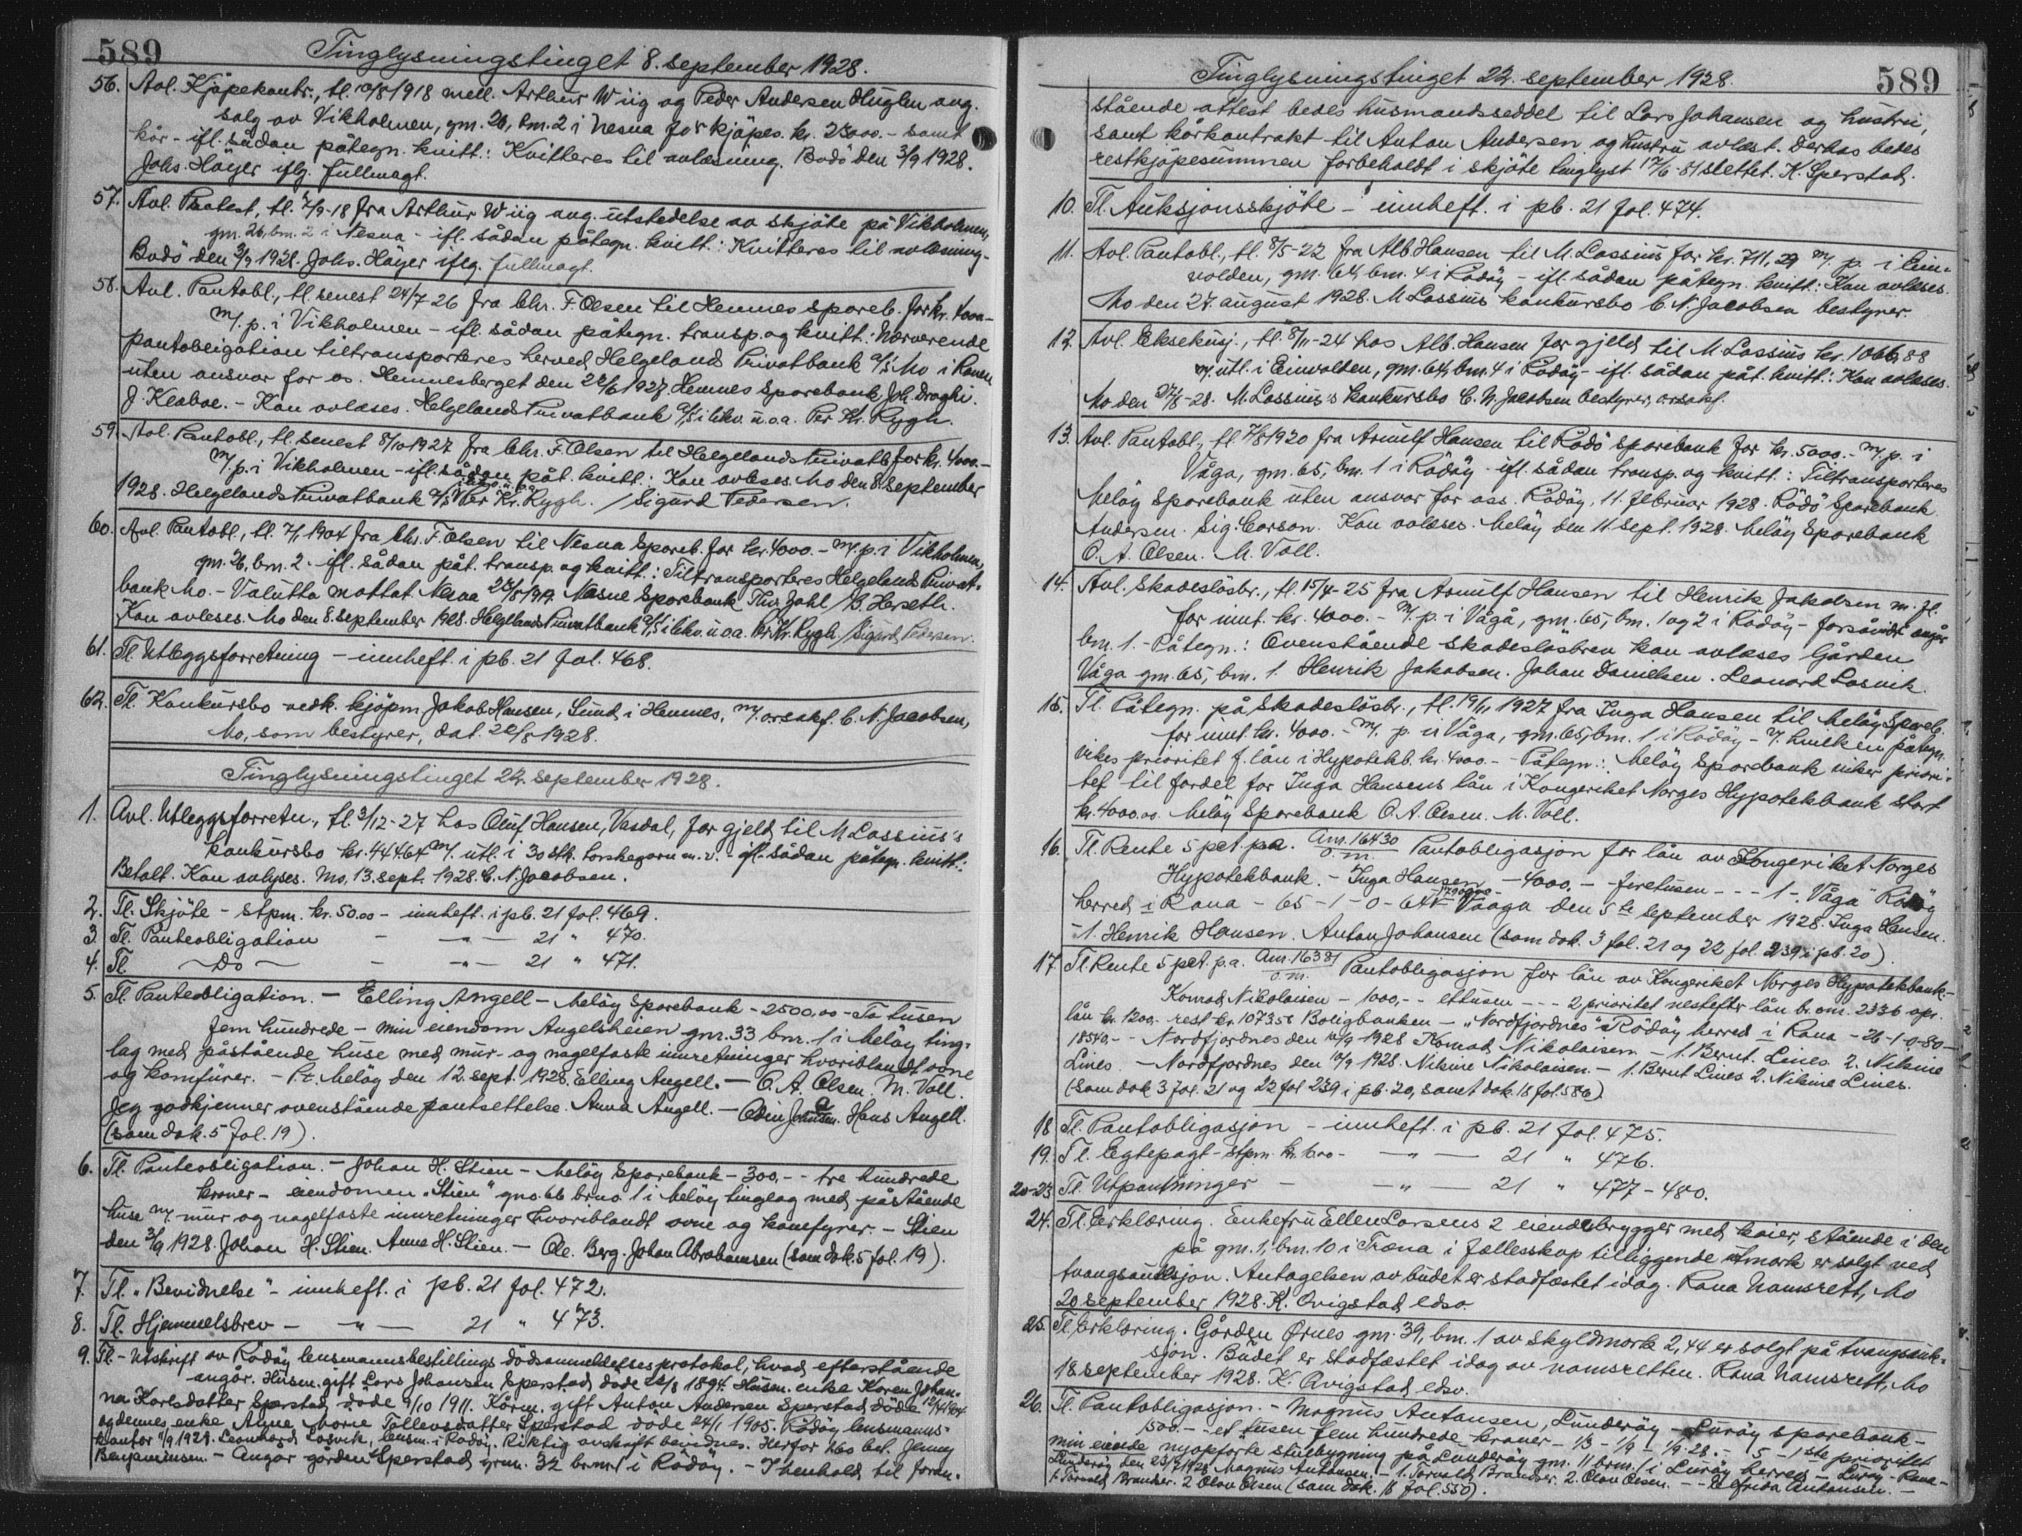 589
Tinglysningstinget 8. september 1928.
56. Avl. Kjøpekontr., tl. 1918 mell. Arthur Wiig og Peder Andersen Huglen ang.
salg av Vikholmen, gm. 26, bm. 2 i Nesna for kjøpes. kr. 25000.- samt
kår - ifl. sådan påtegn. kvitt.: Kvitteres til avlæsning. Bodö den 3/9 1928.
Johs. Höyer iflg. fullmagt.
57. Avl. Protest, tl. 7/9-18 fra Arthur Wiig ang. utstedelse av skjöte på Vikholmen,
gm. 26, bm. 2 i Nesna - ifl. sådan påtegn. kvitt.: Kvitteres til avlæsning.
Bodö den 3/9 1928. Johs. Höyer iflg. fullmagt.
58. Avl. Pantobl., tl. senest 24/7 26 fra Chr. F. Olsen til Hemnes spareb. for kr. 4000-
m/. p. i Vikholmen - ifl. sådan påtegn. transp. og kvitt.: Nærværende
pantobligation tiltransporteres herved Helgeland Privatbank a/s Mo i Ranen
uten ansvar for os. Hemnesberget den 22/6 1927. Hemnes Sparebank Joh. Draghi.
J. Klæboe. - Kan avlæses. Helgelands Privatbank a/s i likv. u.o.a. Per Kr. Rygh.
59. Avl. Pantobl., tl. senest 8/10 1927 fra Chr. F. Olsen til Helgelands Privatb. for kr. 4000.-
m/. p. i Vikholmen - ifl. sådan påt. kvitt.: Kan avleses. Mo den 8. september
1928. Helgelands Privatbank a/s Per Kr. Rygh. / Sigurd Pedersen.
60. Avl. Pantobl., tl. 7/1 1904 fra Chr. F. Olsen til Nesna Spareb. for kr. 4000.- m/. p. i Vikholmen,
gm. 26, bm. 2. ifl. sådan påt. transp. og kvitt.: Tiltransporteres Helgelands Privat-
bank Mo. - Valutta mottat. Nesna Nesne Sparebank Thv. Zahl / B. Herseth.
Kan avleses. Mo den 8. september 1928. Helgelands Privatbank a/s i likv. u.o.a. Per Kr. Rygh / Sigurd Pedersen.
61. Tl. Utleggsforretning - innheft. i pb. 21 fol. 468.
62. Tl. Konkursbo vedk. kjöpm. Jakob Hansen, Sund i Hemnes, m/. orsakf. C. N. Jacobsen,
Mo, som bestyrer, dat. 22/8 1928.
Tinglysningstinget 22. september 1928.
1. Avl. Utleggsforretn., tl. 3/12-27 hos Oluf Hansen, Vasdal, for gjeld til M Lassius's
konkursbo kr. 444.64 m/. utl. i 30 stk. torskegarn m. v. - ifl. sådan påtegn. kvitt.:
Betalt. Kan avlyses. Mo, 13. sept. 1928. C. N. Jacobsen.
2. Tl. Skjöte - stpm. kr. 50.00 - innheft. i pb. 21 fol. 469.
3. Tl. Panteobligation - -"- 21 " 470.
4. Tl. Do - -"- 21 " 471.
5. Tl. Panteobligation. - Elling Angell - Melöy Sparebank - 2500,00 - To tusen
fem hundrede - min eiendom Angelsheien gnr. 33 bm. 1 i Melöy ting-
lag med påstående huse med mur- og nagelfaste innretninger hvoriblandt ovne
og komfurer. - P.t. Melöy den 12. sept. 1928. Elling Angell. - O. A. Olsen. M. Voll.
Jeg godkjenner ovenstående pantsettelse. Anna Angell. - Odin Jensen. Hans Angell.
(som dok. 5 fol. 19).
6. Tl. Panteobligation. - Johan H. Stien - Melöy Sparebank - 300,-- tre hundrede
kroner - eiendomen „Stien" gno. 66 brno. 1 i Melöy tinglag med påstående
huse m/ mur og nagelfaste innretninger hvoriblandt ovne og komfyrer. - Stien
den 3/9 1928. Johan H. Stien. Anne H. Stien. - Ole. Berg. Johan Abrahamsen (som dok. 5 fol. 19).
7. Tl. „Bevidnelse" - innheft. i pb. 21 fol. 472.
8. Tl. Hjemmelsbrev - -"- 21 " 473.
9. Tl. - Utskrift av Rödöy lensmannsbestillings dödsanmeldelsesprotokol, hvad efterstående
angår. Husm. gift Lars Johansen Sperstad döde 22/8 1894. Husm. enke Karen Johan-
na Karlsdatter Sperstad döde 9/10 1911. Kårm. gift Anton Andersen Sperstad döde
og dennes enke Agne Marie Tollevsdatter Sperstad döde 24/1 1905. Rödöy lensmanns-
kontor 1/9 1928. Leonhard Losvik, lensm. i Rödöy. Riktig avskrift bevidnes. Herför Kbo bet. Jenny
Benjaminsen. - Angår gården Sperstad, grnn. 32 brnr. 1 i Rödöy. - I henhold til foran-
589
Tinglysningstinget 22. september 1928.
stående attest bedes husmandsseddel til Lars Johansen og hustru,
samt kårkontrakt til Anton Andersen og hustru avlæst. Derhos bedes
restkjöpesummen forbeholdt i skjöte tinglyst 17/6-81 slettet. K. Sperstad.
10. Tl. Auksjonsskjöte - innheft. i pb. 21 fol. 474.
11. Avl. Pantobl., tl. 8/5-22 fra Alb. Hansen til M. Lassius for kr. 711,29 m/. p. i Ein-
volden, gm. 64, bm. 4 i Rödöy - ifl. sådan påtegn. kvitt.: Kan avleses.
Mo den 27. august 1928. M Lassius konkursbo C. N. Jacobsen bestyrer.
12. Avl. Eksekusj., tl. 8/11-24 hos Alb. Hansen for gjeld til M Lassius kr. 1066,88
m/. utl. i Einvolden, gm. 64, bm. 4 i Rödöy - ifl. sådan påt. kvitt.: Kan avleses.
Mo den 27/8-28. M. Lassius's konkursbo C. N. Jacobsen bestyrer, orsakf.
13. Avl. Pantobl., tl. 7/8 1920 fra Arnulf Hansen til Rödö Sparebank for kr. 5000.- m/. p. i
Våga, gm. 65, bm. 1 i Rödöy - ifl. sådan transp. og kvitt.: Tiltransporteres
Melöy Sparebank uten ansvar for oss. Rödöy, 11. februar 1928. Rödö Sparebank
Andersen. Sig. Carson. Kan avleses. Melöy den 11. sept. 1928. Melöy Sparebank
O. A. Olsen. M. Voll.
14. Avl. Skadeslösbr., tl. 15/4-25 fra Arnulf Hansen til Henrik Jakobsen m. fl.
for innt. kr. 4000.- m/. p. i Vågå, gm. 65, bm. 1 og 2 i Rödöy - forsåvidt angår
bm. 1. - Påtegn.: Ovenstående skadeslösbrev kan avlæses Gården
Våga gm. 65, bm. 1. Henrik Jakobsen. Johan Danielsen. Leonard Losvik.
15. Tl. Påtegn. på Skadeslösbr., tl. 19/11 1927 fra Inga Hansen til Melöy Spareb.
for innt. kr. 4000.- m/. p. i Våga, gm. 65, bm. 1 i Rödöy - v/. hvilken påtegn.
vikes prioritet f. lån i Hypotekb. kr. 4000.- - Påtegn.: Melöy Sparebank viker priori-
tet til fordel for Inga Hansens lån i Kongeriket Norges Hypotekbank stort
kr. 4000.00. Melöy Sparebank O. A. Olsen. M. Voll.
16. Tl. Rente 5 pct. p.a. Anr. 16430 o.m. Pantobligasjon for lån av Kongeriket Norges
Hypotekbank. - Inga Hansen - 4000,- - firetusen - - - 1 -. Våga Rödöy
herred i Rana - 65 - 1 - 0 - 644 - Vaaga den 5te september 1928. Inga Hansen.
-1. Henrik Hansen. Anton Johansen (som dok. 3 fol. 21 og 22 fol. 239 i pb. 20).
17. Tl. Rente 5 pct. p.a. Anr. 16381 o.m. Pantobligasjon for lån av Kongeriket Norges Hypotekbank.-
Konrad Nikolaisen - 1000,-- ettusen - - - 2 prioritet nestefter lån br. om. 2336 opr.
lån kr. 1200.- rest kr. 1073.56 Boligbanken - „Nordfjordnes" Rödöy herred i Rana - 26-1-0-80-
18540.-- Nordfjordnes den 10/9 1928 Konrad Nikolaisen - 1. Bernt. Lines 2. Nikine
Lines. - Nordfjordnes den 10/9 1928. Nikine Nikolaisen. - 1. Bernt Lines 2. Nikine Lines.
(som dok 3 fol. 21 og 22 fol 239 i pb. 20, samt dok. 18 fol. 586).
18 Tl. Pantobligasjon - innheft. i pb. 21 fol. 475.
19. Tl. Egtepagt - stpm. kr. 6.00 - -"- 21 " 476.
20-23 Tl. Utpantninger - -"- 21 " 477 - 480.
24. Tl. Erklæring. Enkefru Ellen Larsens 2 eiendebrygger med kaier, stående i den
på gm. 1, bm. 10 i Træna i fællesskap tilliggende utmark er solgt ved
tvangsauksjon. Antagelsen av budet er stadfæstet idag. Rana Namsrett, Mo
20 september 1928. K. Qvigstad, edsv.
25. Tl. Erklæring. Gården Ørnes gm. 39, bm. 1 av skyldmark 2,44 er solgt på tvangsauk-
sjon. Budet er stadfæstet idag av namsretten. Rana Namsrett, Mo
18 september 1928. K. Qvigstad, edsv.
26. Tl. Pantobligasjon. - Magnus Antonsen, Lunderöy - Luröy sparebank -
1500.- - et tusen fem hundrede kroner - 1/3 - 1/9 - 1/9-28. - 5 - 1ste prioritet
min eiende nyopförte stuebygning på Lunderöy gm. 11 brnr. 1 i Luröy herred - Luröy - Rana -
Lunderöy den 23/7 1928 Magnus Antonsen. - 1. Torvald Brandser. 2. Olav Olsen. - - Elfrida Antonsen. -
1. Torvald Brandser. 2 Olav Olsen (som dok. 18 fol. 550).